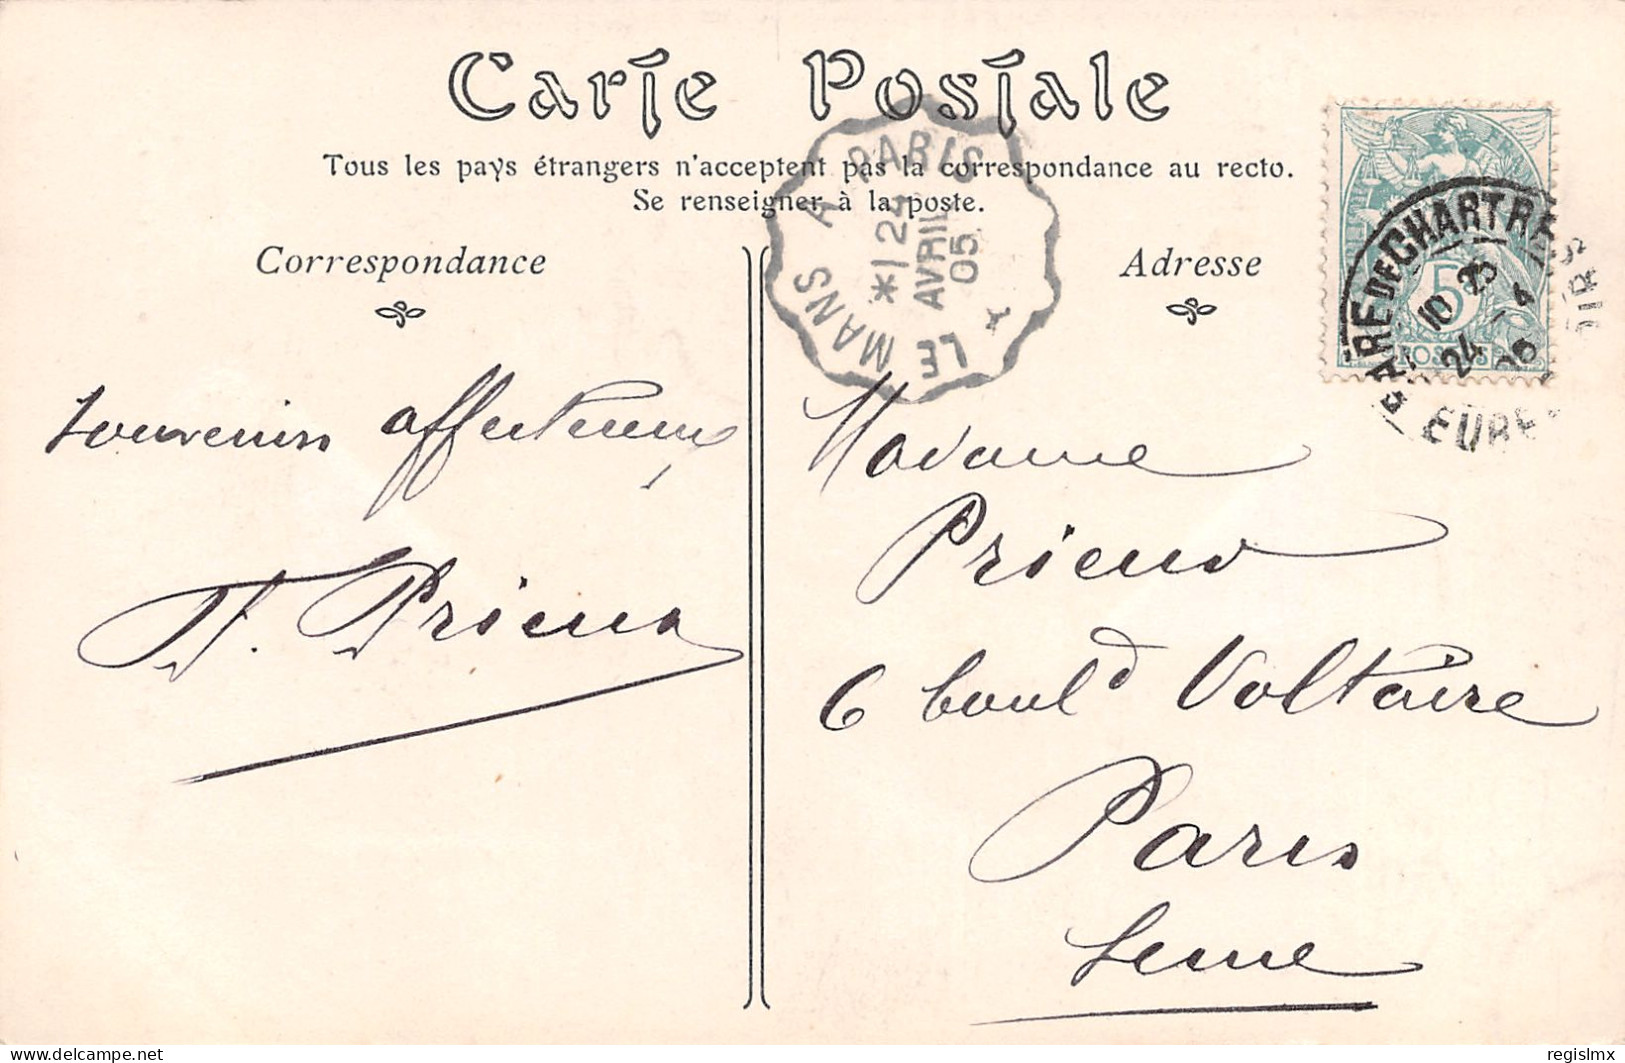 Carte Postale
Tous les pays étrangers n'acceptent pas la correspondance au recto.
Se renseigner à la poste.
Correspondance
Adresse
LE MANS A PARIS
*1 24
AVRIL
05
GARE DE CHARTRES
10 25
24 - 4
05
EURE
5
POSTES
souvenirs affectueux
Prieur
Madame
Prieur
6 boul^d Voltaire
Paris
Seine
delcampe.net
regislmx